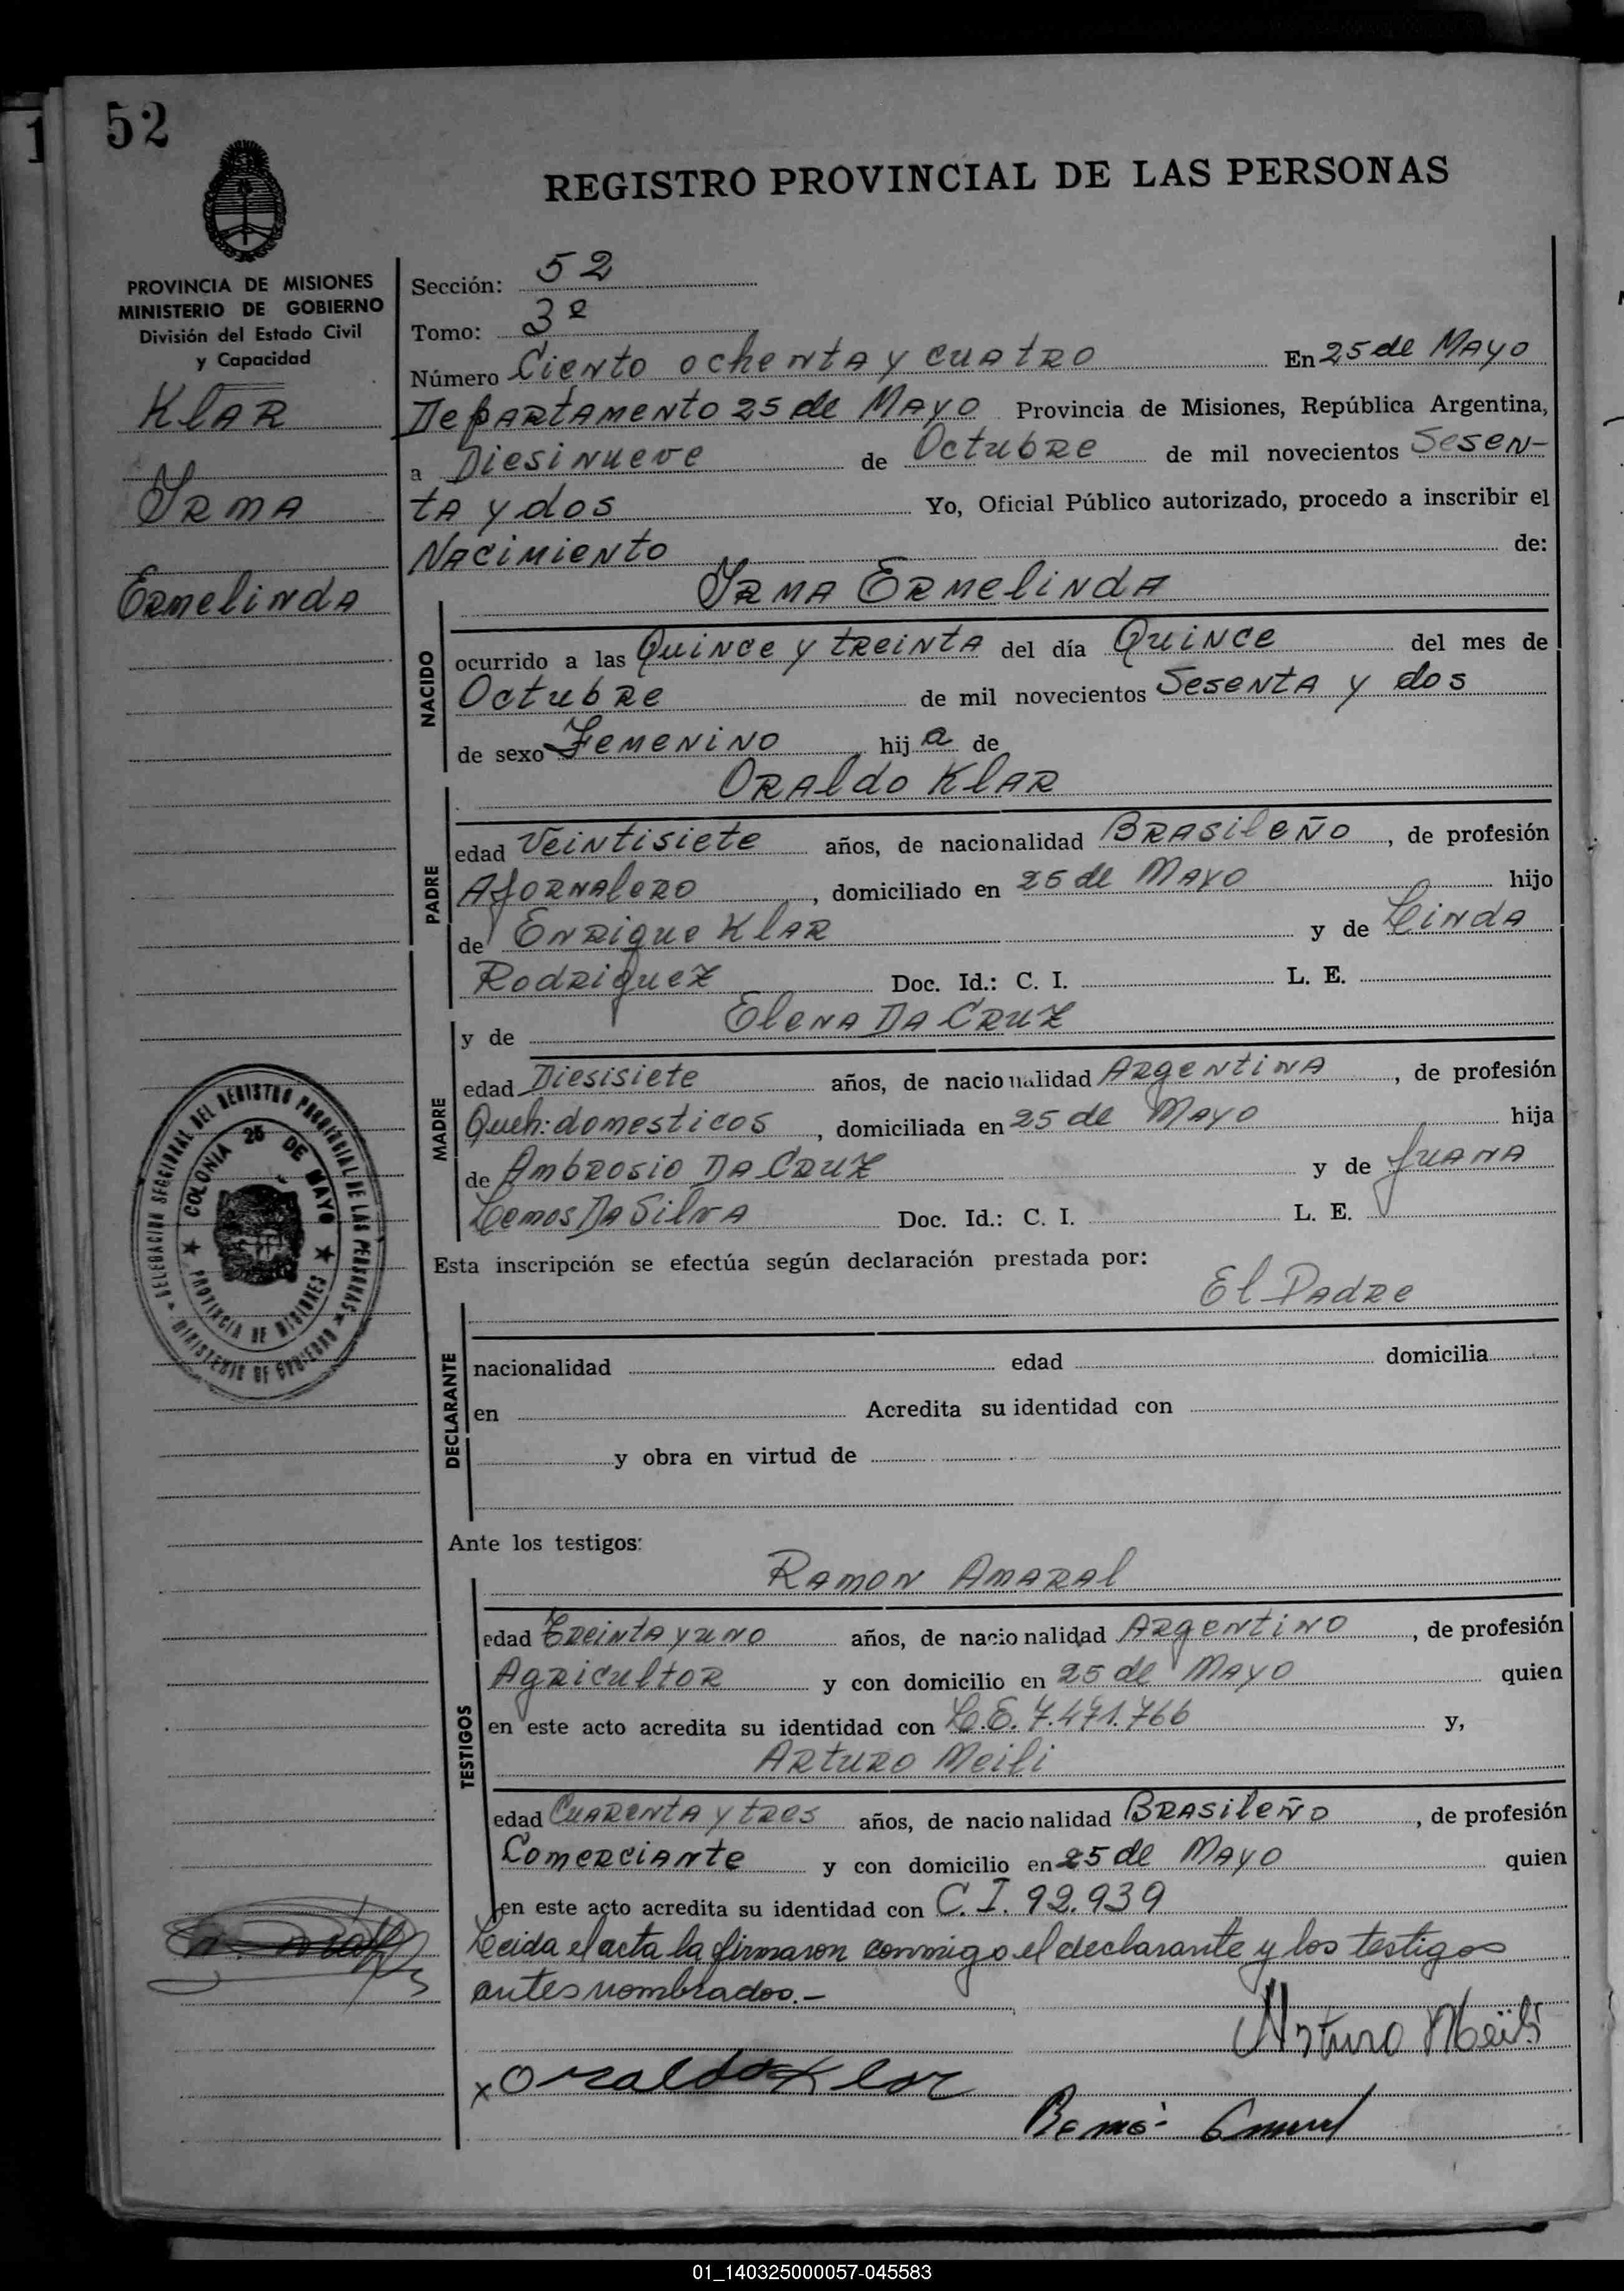 52
1
REGISTRO PROVINCIAL DE LAS PERSONAS
PROVINCIA DE MISIONES
MINISTERIO DE GOBIERNO
División del Estado Civil
y Capacidad
Klar
Irma
Ermelinda
Sección: 52
Tomo: 3º
Número Ciento ochenta y cuatro En 25 de Mayo
Departamento 25 de Mayo Provincia de Misiones, República Argentina,
a Diesinueve de Octubre de mil novecientos Sesen-
ta y dos Yo, Oficial Público autorizado, procedo a inscribir el
Nacimiento de:
Irma Ermelinda
NACIDO
ocurrido a las Quince y treinta del día Quince del mes de
Octubre de mil novecientos Sesenta y dos
de sexo Femenino hij a de
Oraldo Klar
PADRE
edad Veintisiete años, de nacionalidad Brasileño, de profesión
Ajornalero, domiciliado en 25 de Mayo hijo
de Enrique Klar y de Linda
Rodriguez Doc. Id.: C. I. L. E.
y de Elena Da Cruz
MADRE
edad Diesisiete años, de nacionalidad Argentina, de profesión
Queh: domesticos, domiciliada en 25 de Mayo hija
de Ambrosio Da Cruz y de Juana
Lemos Da Silva Doc. Id.: C. I. L. E.
DELEGACION SECCIONAL DEL REGISTRO PROVINCIAL DE LAS PERSONAS
MINISTERIO DE GOBIERNO
COLONIA 25 DE MAYO
PROVINCIA DE MISIONES
Esta inscripción se efectúa según declaración prestada por:
El Padre
DECLARANTE
nacionalidad edad domicilia
en Acredita su identidad con
y obra en virtud de
Ante los testigos:
Ramon Amaral
TESTIGOS
edad Treinta y uno años, de nacionalidad Argentino, de profesión
Agricultor y con domicilio en 25 de Mayo quien
en este acto acredita su identidad con L.E. 7.471.766 y,
Arturo Meili
edad Cuarenta y tres años, de nacionalidad Brasileño, de profesión
Comerciante y con domicilio en 25 de Mayo quien
en este acto acredita su identidad con C.I. 92.939
Leida el acta la firmaron conmigo el declarante y los testigos
antes nombrados.-
Arturo Meili
x Oraldo Klar
01_140325000057-045583